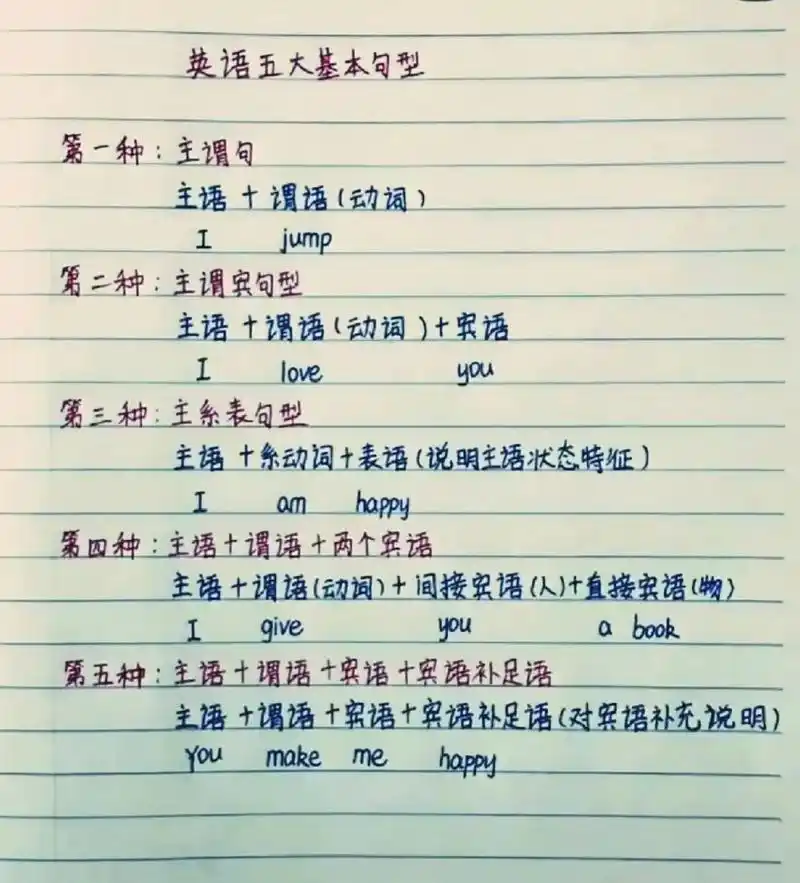 英语五大基本句型
第一种：主谓句
主语 + 谓语(动词)
I jump
第二种：主谓宾句型
主语 + 谓语(动词) + 宾语
I love you
第三种：主系表句型
主语 + 系动词 + 表语(说明主语状态特征)
I am happy
第四种：主语 + 谓语 + 两个宾语
主语 + 谓语(动词) + 间接宾语(人) + 直接宾语(物)
I give you a book
第五种：主语 + 谓语 + 宾语 + 宾语补足语
主语 + 谓语 + 宾语 + 宾语补足语(对宾语补充说明)
You make me happy